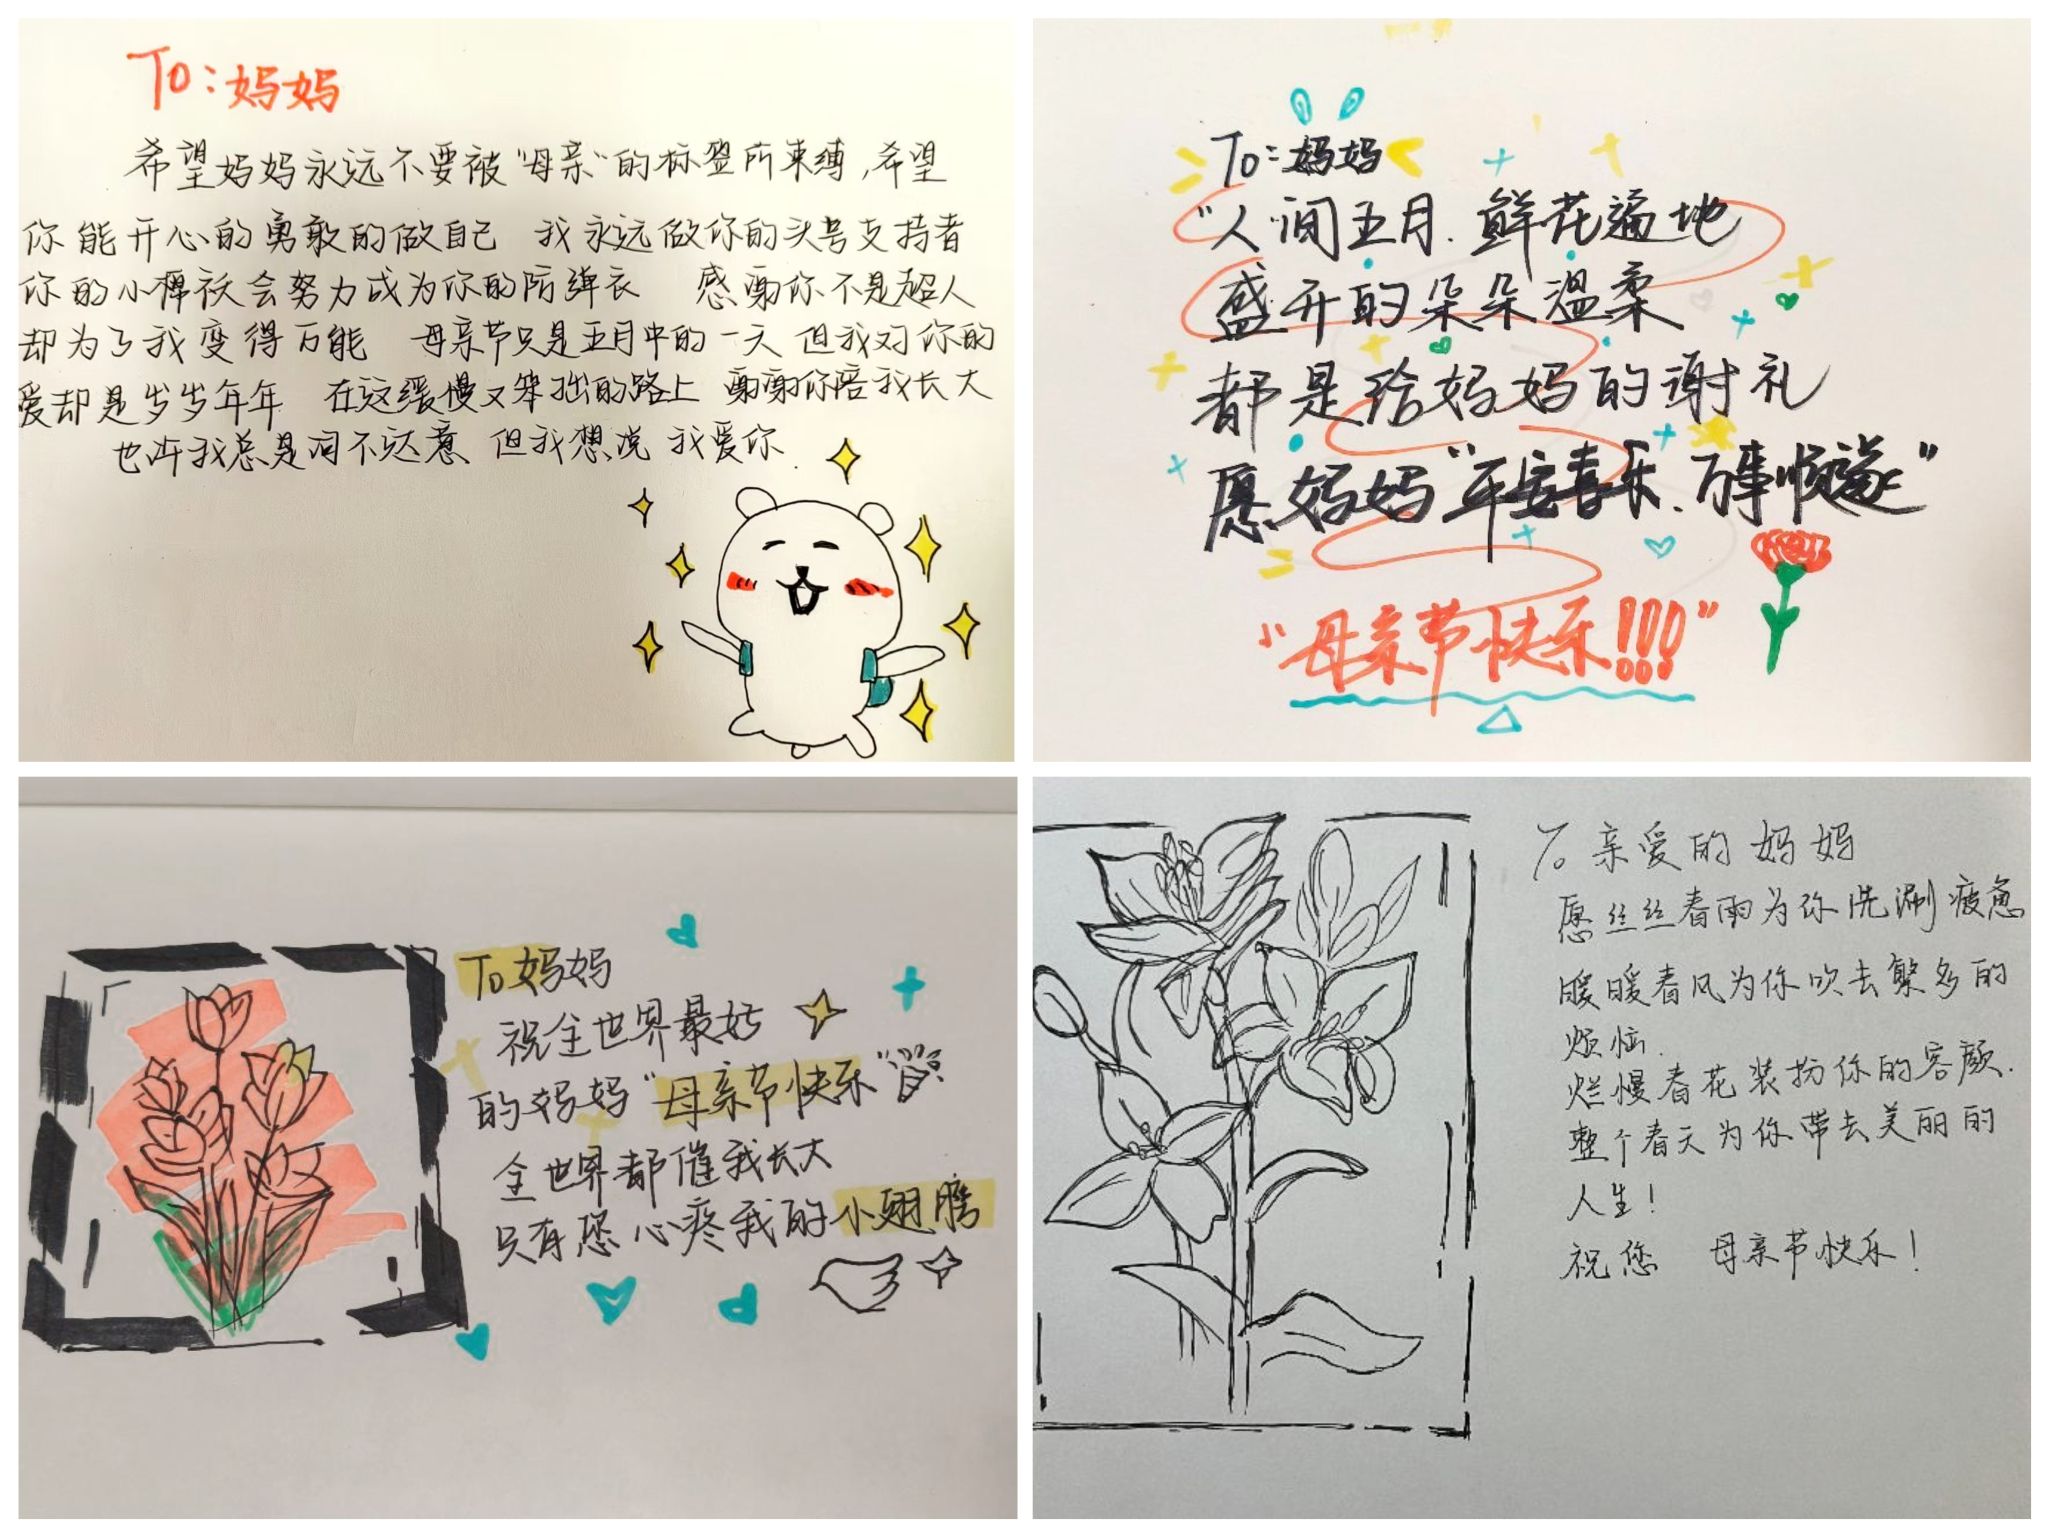 To:妈妈
希望妈妈永远不要被"母亲"的标签所束缚,希望
你能开心的勇敢的做自己 我永远做你的头号支持者
你的小棉袄会努力成为你的防弹衣 感谢你不是超人
却为了我变得万能 母亲节只是五月中的一天 但我对你的
爱却是岁岁年年 在这缓慢又笨拙的路上 谢谢你陪我长大
也许我总是词不达意 但我想说 我爱你.
To:妈妈
"人间五月.鲜花遍地
盛开的朵朵温柔
都是给妈妈的谢礼
愿妈妈"平安喜乐.万事顺遂"
"母亲节快乐!!!"
To妈妈
祝全世界最好
的妈妈"母亲节快乐"
全世界都催我长大
只有您心疼我的小翅膀
To亲爱的妈妈
愿丝丝春雨为你洗涮疲惫
暖暖春风为你吹去繁多的
烦恼.
烂慢春花装扮你的容颜.
整个春天为你带去美丽的
人生!
祝您 母亲节快乐!